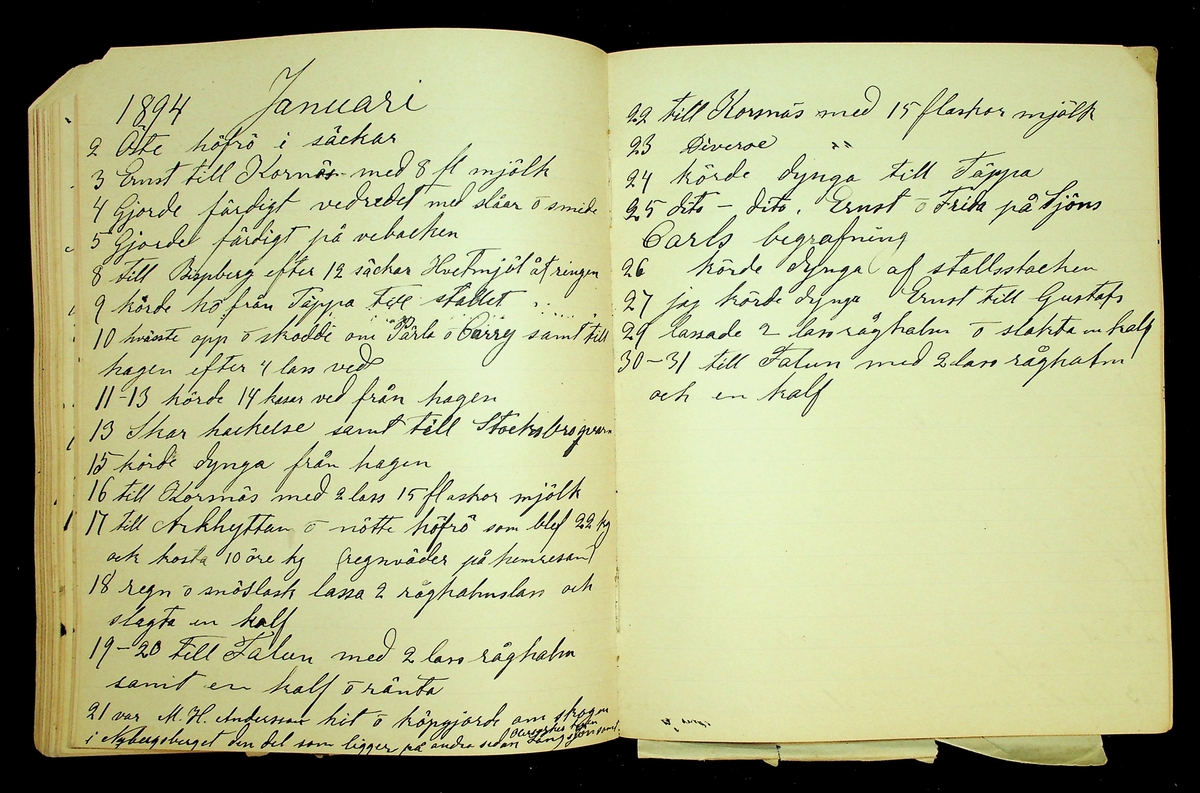 1894 Januari
2 Öste höfrö i säckar
3 Ernst till Kornäs med 8 fl mjölk
4 Gjorde färdigt vedredet med slåar o smide
5 Gjorde färdigt på vebacken
8 till Bispberg efter 12 säckar Hvetmjöl åt ringen
9 körde hö från Täppa till stallet
10 hvässte opp o skodde om Pärla o Carry samt till
hagen efter 4 lass ved
11-13 körde 14 kasar ved från hagen
13 Skar hackelse samt till Stocksbroqvarn
15 körde dynga från hagen
16 till Kornäs med 2 lass 15 flaskor mjölk
17 till Arkhyttan o nötte höfrö som blef 22 kg
och kosta 10 öre kg (regnväder på hemresan)
18 regn o snöslask lassa 2 råghalmslass och
slagta en kalf
19-20 till Falun med 2 lass råghalm
samt en kalf o ränta
21 var M. H. Andersson hit o köpgjorde om skogen
i Nybergsberget den del som ligger på andra sidan Långsjön samt
22 till Kornäs med 15 flaskor mjölk
23 Diverse "
24 körde dynga till Täppa
25 dito - dito. Ernst o Frida på Sjöns
Carls begrafning
26 körde dynga af stallsstacken
27 jag körde dynga Ernst till Gustafs
29 lassade 2 lass råghalm o slakta en kalf
30-31 till Falun med 2 lass råghalm
och en kalf